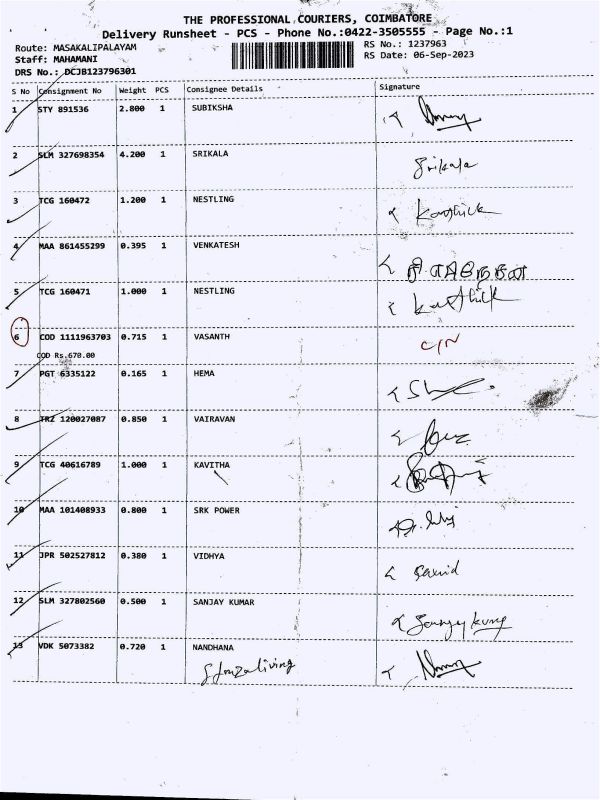 THE PROFESSIONAL COURIERS, COIMBATORE
Delivery Runsheet - PCS - Phone No.:0422-3505555 - Page No.:1
Route: MASAKALIPALAYAM RS No.: 1237963
Staff: MAHAMANI RS Date: 06-Sep-2023
DRS No.: DCJB123796301
S No Consignment No Weight PCS Consignee Details Signature
1 STY 891536 2.800 1 SUBIKSHA
2 SLM 327698354 4.200 1 SRIKALA Srikala
3 TCG 160472 1.200 1 NESTLING Karthick
4 MAA 861455299 0.395 1 VENKATESH
5 TCG 160471 1.000 1 NESTLING Karthick
6 COD 1111963703 0.715 1 VASANTH C/N
COD Rs.670.00
7 PGT 6335122 0.165 1 HEMA
8 TRZ 120027087 0.850 1 VAIRAVAN
9 TCG 40616789 1.000 1 KAVITHA
10 MAA 101408933 0.800 1 SRK POWER
11 JPR 502527812 0.380 1 VIDHYA
12 SLM 327802560 0.500 1 SANJAY KUMAR
13 VDK 5073382 0.720 1 NANDHANA